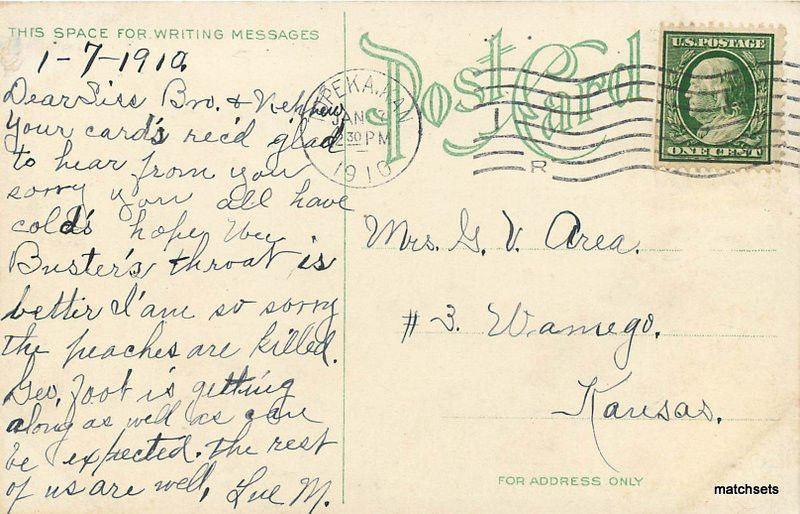 THIS SPACE FOR WRITING MESSAGES
1-7-1910.
Dear Siss Bro. & Nephew
Your card's rec'd glad
to hear from you
sorry you all have
cold's hope Wee
Buster's throat is
bettir I'am so sorry
the peaches are killed.
Geo. foot is getting
along as well as can
be expected. the rest
of us are well, Lue M.
Post Card
TOPEKA, KAN
JAN
2 30 PM
1910
I
R
U.S. POSTAGE
ONE CENT
Mrs. G. V. Area.
# 3. Wamego.
Kansas.
FOR ADDRESS ONLY
matchsets